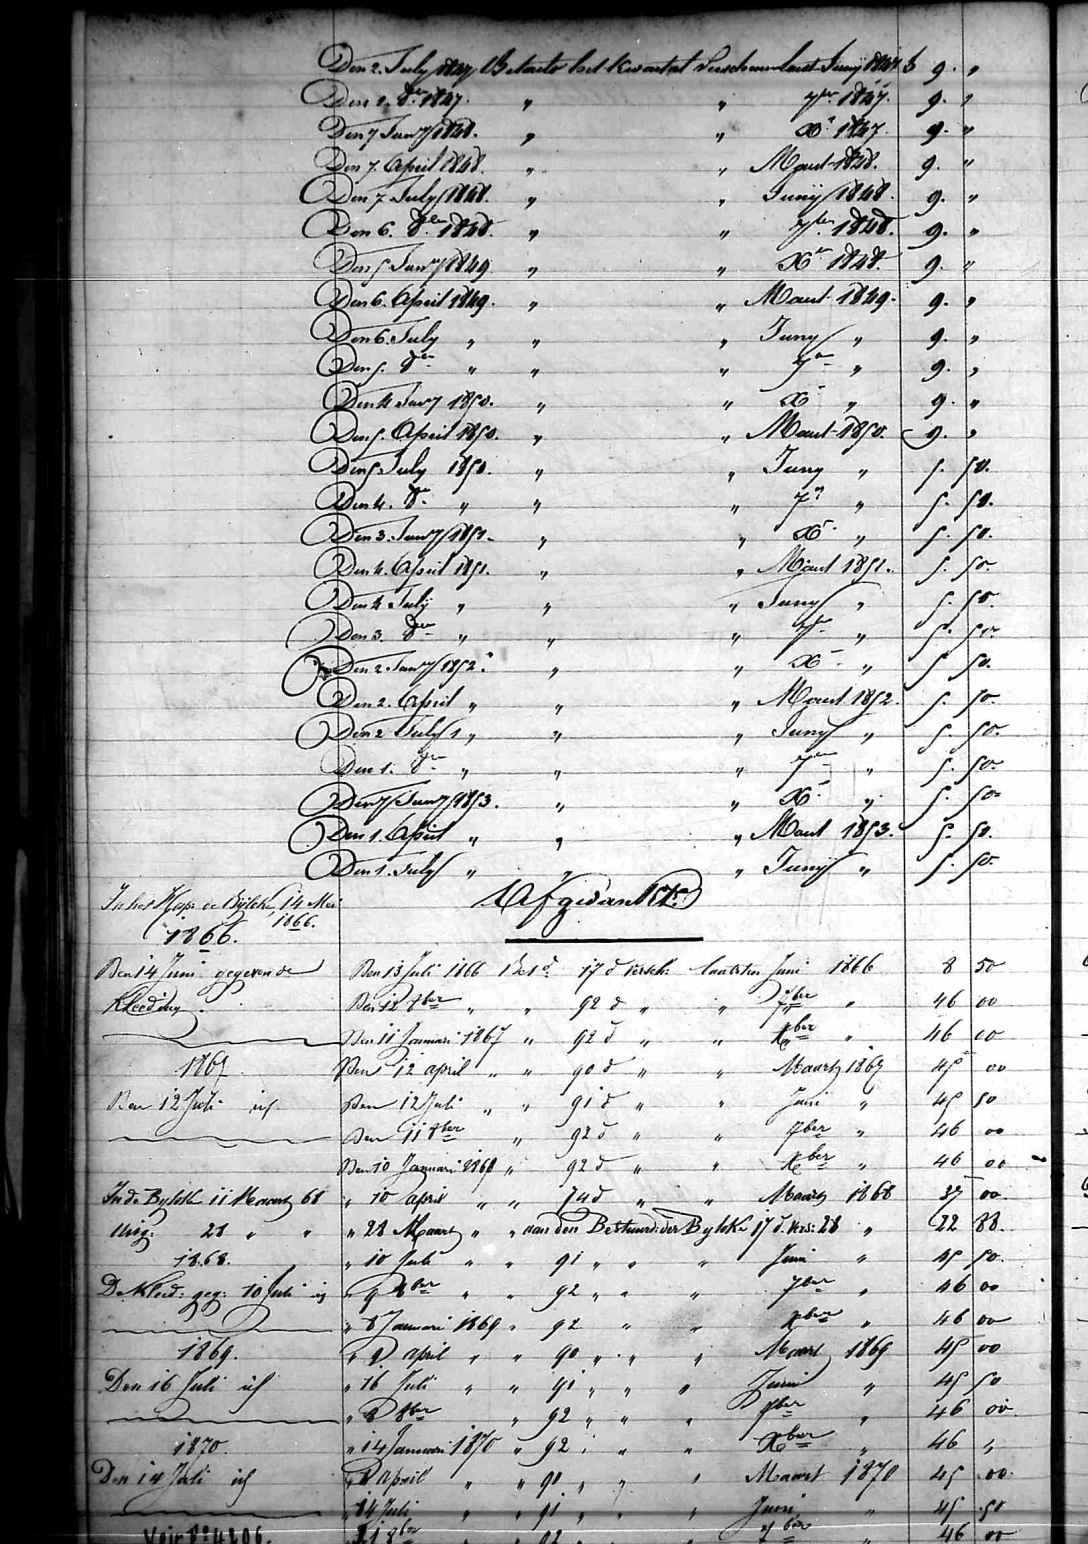 Den 2. July 1847 Betaeld het kwartael verschenen laest Juny 1847. 9. "
Den 1. 8er 1847. " " 7er 1847. 9. "
Den 7 Janry 1848. " " Xr 1847. 9. "
Den 7. April 1848. " " Maert 1848. 9. "
Den 7 July 1848. " " Junij 1848. 9. "
Den 6. 8er 1848. " " 7ber 1848. 9. "
Den 5 Janry 1849 " " Xr 1848. 9. "
Den 6. April 1849. " " Maert 1849. 9. "
Den 6. July " " " Juny " 9. "
Den 5. 8er " " " 7er " 9. "
Den 4 Janry 1850. " " Xr " 9. "
Den 5. April 1850. " " Maert 1850. 9. "
Den 5 July 1850. " " Juny " 5. 50.
Den 4. 8er " " " 7r " 5. 50.
Den 3. Janry 1851. " " Xr " 5. 50.
Den 4. April 1851. " " Maert 1851. 5. 50.
Den 4 July " " " Juny " 5. 50.
Den 3. 8er " " " 7er " 5. 50
Den 2 Janry 1852. " " Xr " 5. 50.
Den 2. April " " " Maert 1852. 5. 50.
Den 2 July " " " Juny " 5. 50.
Den 1. 8er " " " 7er " 5. 50.
Den 7 Janry 1853. " " Xr " 5. 50.
Den 1. April " " " Maert 1853. 5. 50.
Den 1. July " " " Junij " 5. 50.
In het Hosp. de Byloke, 14 Mei 1866.
Afgedankt
1866.
Den 14 Juni gegeven de Den 13 Juli 1866 Betd. 17 d versch: laatsten Juni 1866 8 50
Kleeding. Den 12 8ber " " 92 d " " 7ber " 46 00
Den 11 Januari 1867 " 92 d " " Xber " 46 00
1867 Den 12 april " " 90 d " " Maart 1867 45 00
Den 12 Juli id Den 12 Juli " " 91 d " " Juni " 45 50
Den 11 8ber " 92 d " " 7ber " 46 00
Den 10 Januari 1868 " 92 d " " Xber " 46 00
In de Byloke 11 Maart 68 " 10 april " " 74 d " " Maart 1868 37 00
Uitg: 28 " " " 28 Maart " " aan den Bestuurd: der Byloke 17 d. vers: 28 " 22 88
1868. " 10 Juli " " 91 " " " Juni " 45 50.
De Kleed: geg: 10 Juli id " 9 8ber " " 92 " " " 7ber " 46 00
" 8 Januari 1869 " 92 " " Xber " 46 00
1869. " 9 april " " 90 " " " Maart 1869 45 00
Den 16 Juli id " 16 Juli " " 91 " " " Juni " 45 50
" 8 8ber " 92 " " " 7ber " 46 00.
1870. " 14 Januari 1870 " 92 " " " Xber " 46 "
Den 14 Juli id " 8 April " " 90 " " " Maart 1870 45 00.
" 14 Juli " " 91 " " " Juni " 45 50
Voir No 4206. 8ber " " 92 " " " 7ber " 46 00